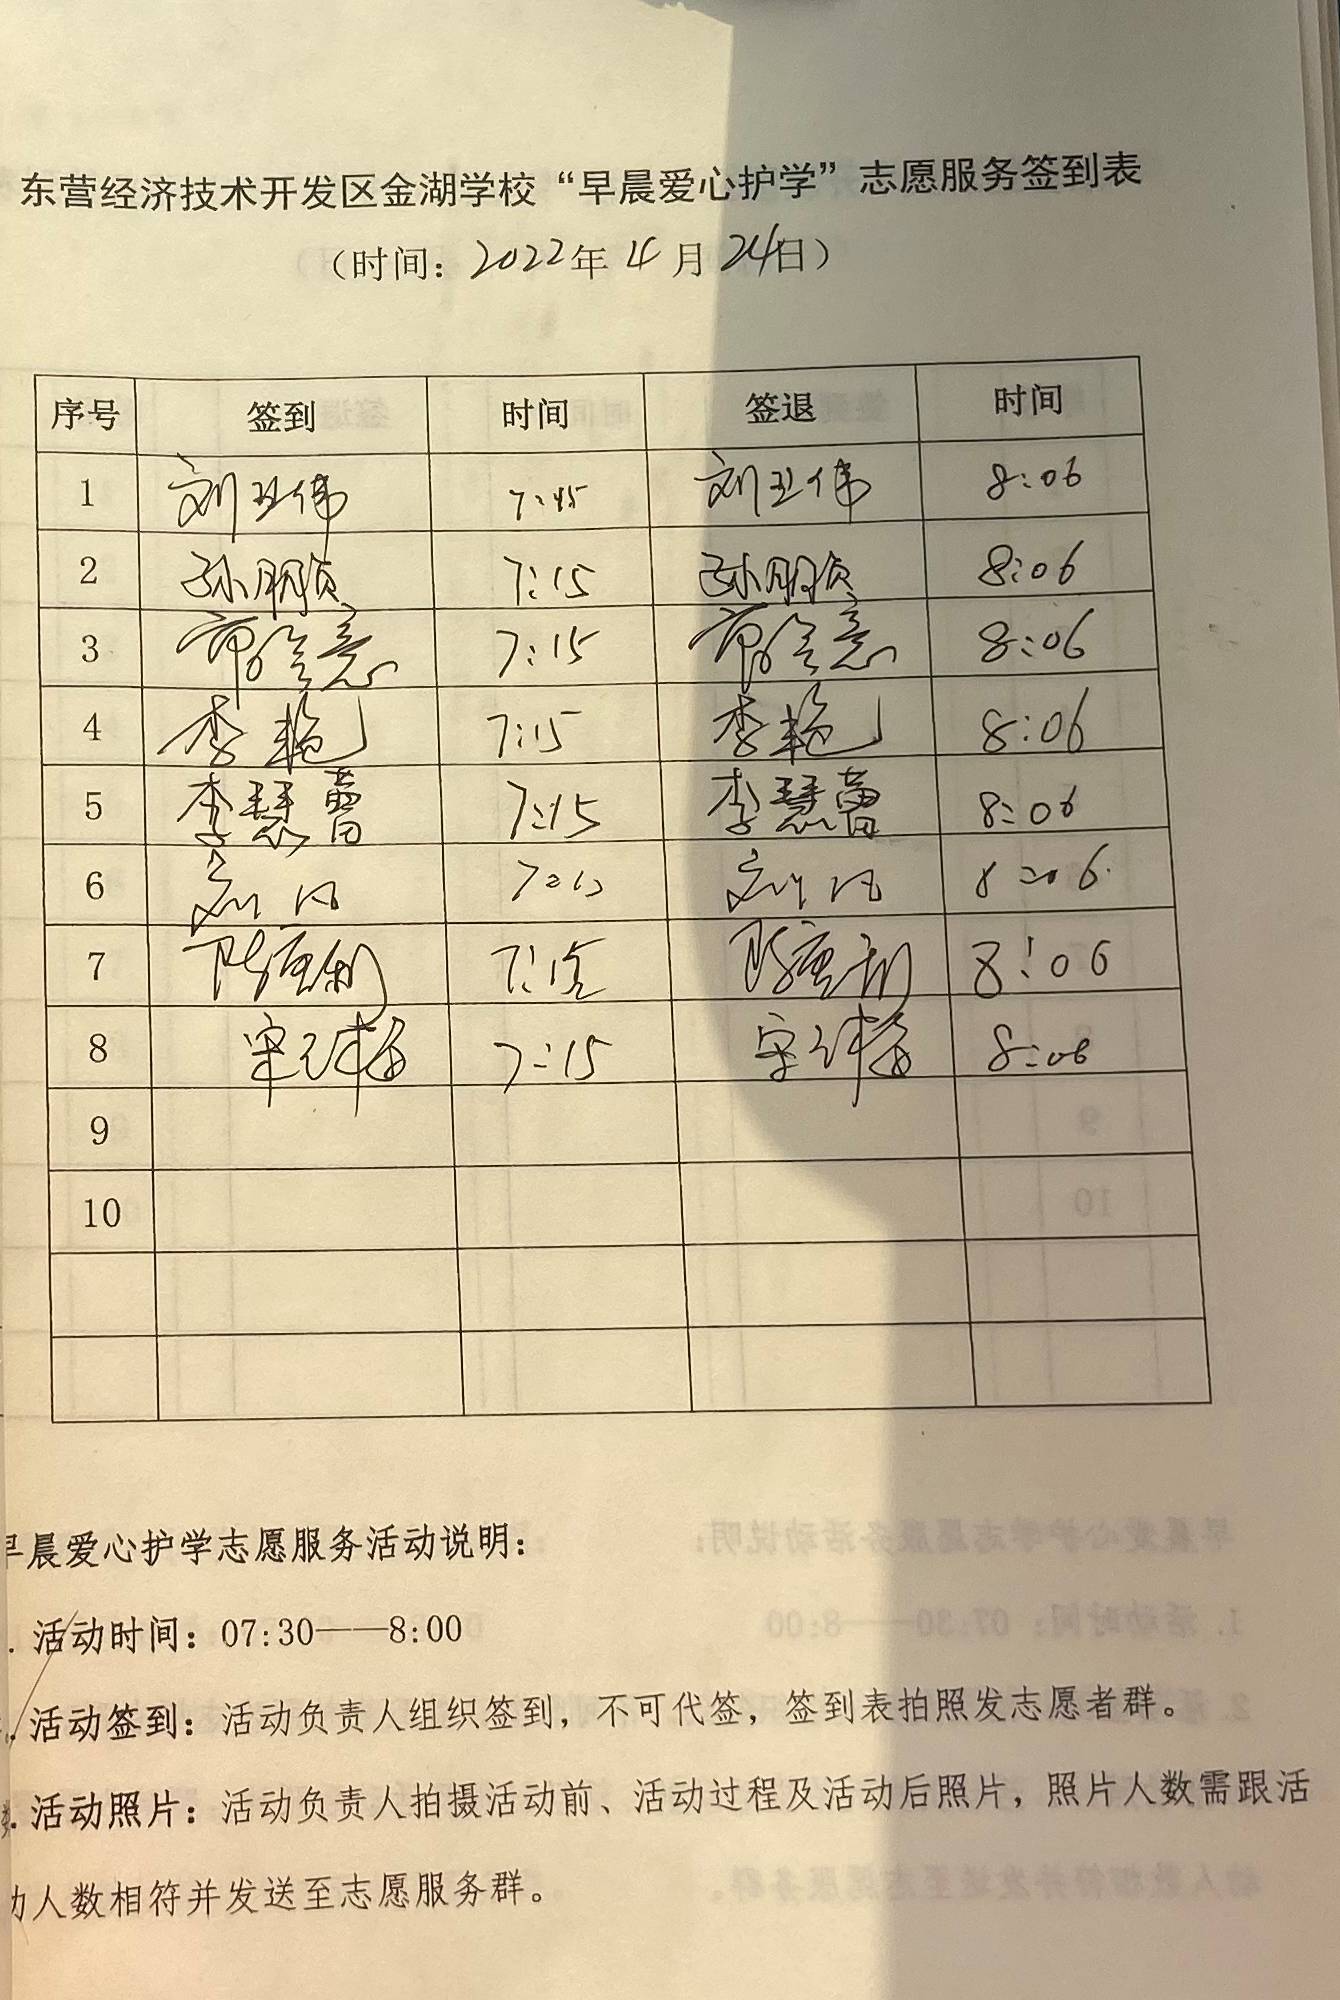 东营经济技术开发区金湖学校“早晨爱心护学”志愿服务签到表
（时间：2022年4月24日）
序号 签到 时间 签退 时间
1 刘卫伟 7:15 刘卫伟 8:06
2 孙朋贞 7:15 孙朋贞 8:06
3 7:15 8:06
4 李艳 7:15 李艳 8:06
5 李慧蕾 7:15 李慧蕾 8:06
6 刘凡 7:15 刘凡 8:06
7 7:15 8:06
8 7:15 8:06
9
10
早晨爱心护学志愿服务活动说明：
. 活动时间：07:30——8:00
. 活动签到：活动负责人组织签到，不可代签，签到表拍照发志愿者群。
. 活动照片：活动负责人拍摄活动前、活动过程及活动后照片，照片人数需跟活
动人数相符并发送至志愿服务群。